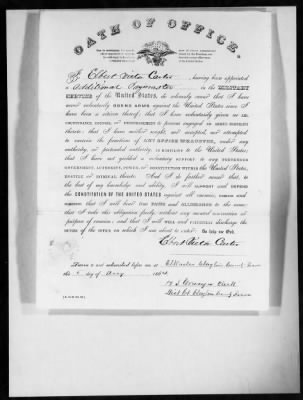 OATH OF OFFICE.
I, Elbert Victor Carter, having been appointed
a Additional Paymaster in the MILITARY
SERVICE of the United States, do solemnly swear that I have
never voluntarily BORNE ARMS against the United States since I
have been a citizen thereof; that I have voluntarily given no AID,
COUNTENANCE, COUNSEL, or ENCOURAGEMENT to persons engaged in ARMED HOSTILITY
thereto; that I have neither sought, nor accepted, nor attempted
to exercise the functions of ANY OFFICE WHATEVER, under any
authority, or pretended authority, in HOSTILITY to the United States;
that I have not yielded a voluntary support to any PRETENDED
GOVERNMENT, AUTHORITY, POWER, or CONSTITUTION WITHIN the United States,
HOSTILE or INIMICAL thereto. And I do further swear that, to
the best of my knowledge and ability, I will SUPPORT and DEFEND
the CONSTITUTION OF THE UNITED STATES against all ENEMIES, FOREIGN and
DOMESTIC; that I will bear TRUE FAITH and ALLEGIANCE to the same;
that I take this obligation freely, without any MENTAL RESERVATION or
PURPOSE OF EVASION; and that I will WELL and FAITHFULLY discharge the
DUTIES of the OFFICE on which I am about to enter. So help me God.
Elbert Victor Carter
Sworn to and subscribed before me, at Elkader Clayton County Iowa
this day of 1864
Clerk
Dist Ct Clayton County Iowa